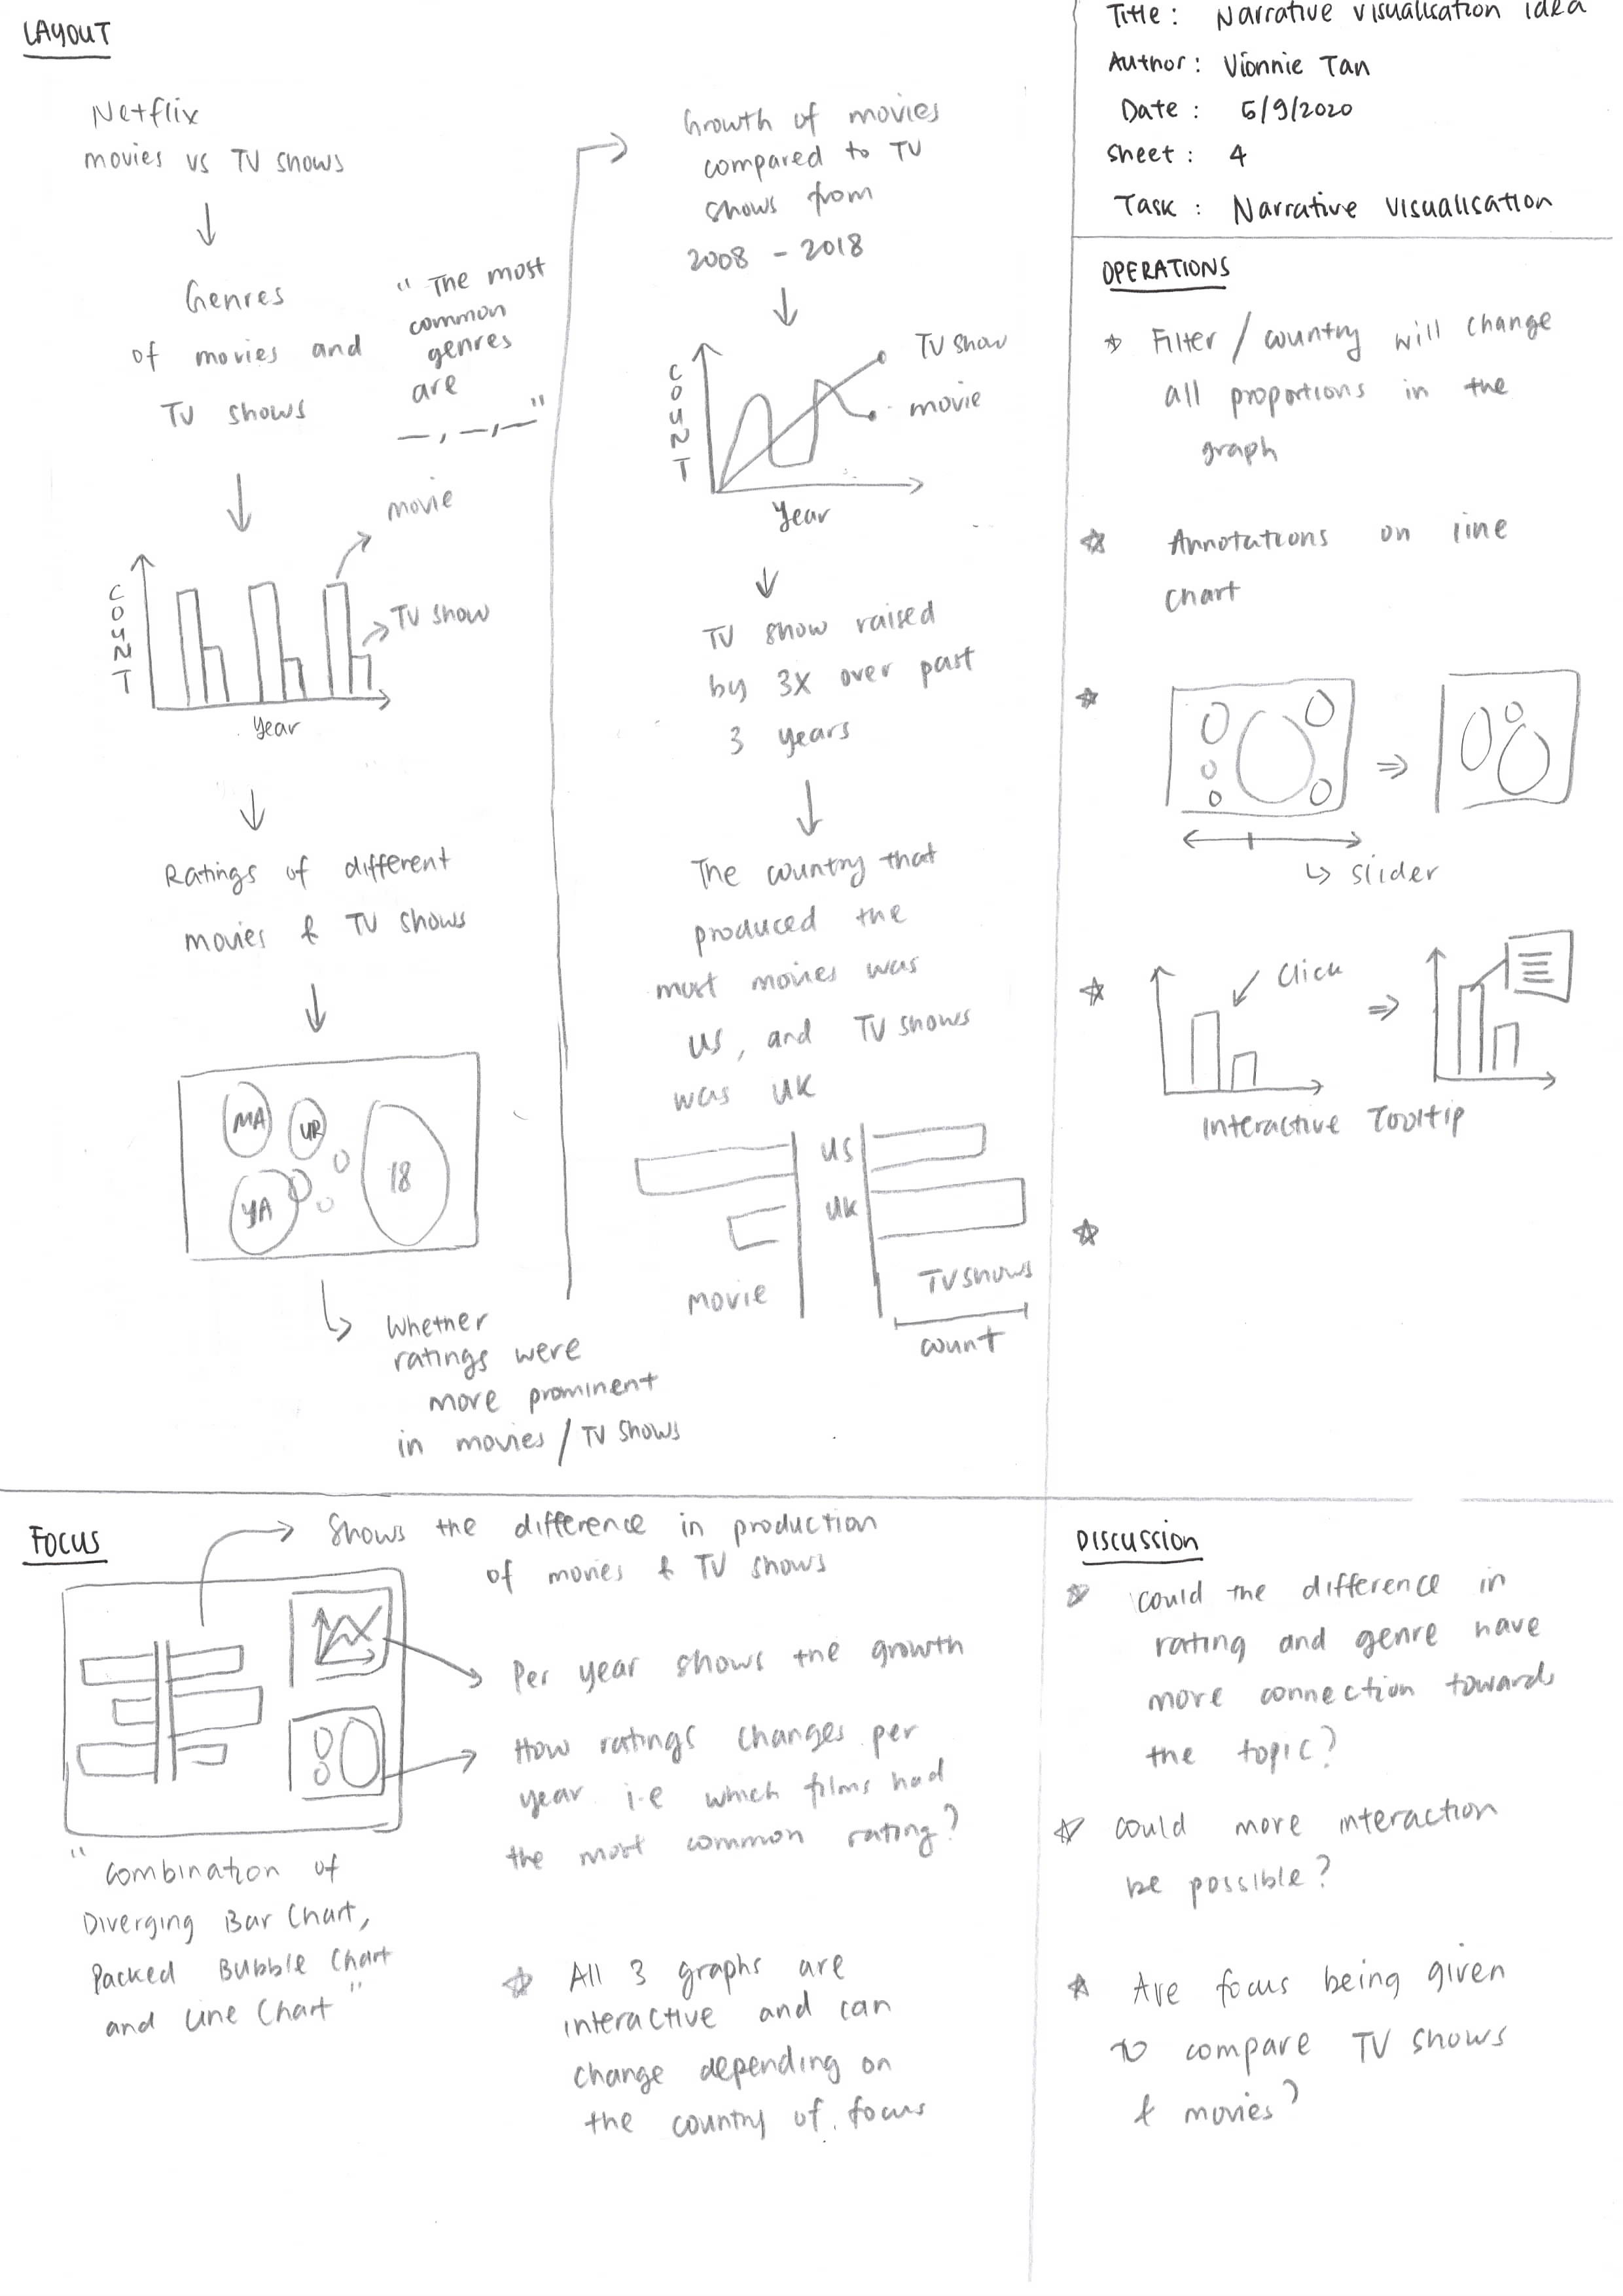 LAYOUT
Netflix
movies vs TV shows
Genres
of movies and
TV shows
" The most
common
genres
are
—, —, — "
movie
TV show
COUNT
Year
Ratings of different
movies & TV shows
MA
UR
YA
18
Whether
ratings were
more prominent
in movies / TV shows
Growth of movies
compared to TV
shows from
2008 - 2018
TV show
movie
COUNT
Year
TV show raised
by 3x over past
3 years
The country that
produced the
most movies was
US, and TV shows
was UK
US
UK
movie
TV shows
count
Title : Narrative visualisation idea
Author : Vionnie Tan
Date : 5/9/2020
Sheet : 4
Task : Narrative visualisation
OPERATIONS
Filter / country will change
all proportions in the
graph
Annotations on line
chart
slider
Click
Interactive Tooltip
FOCUS
Shows the difference in production
of movies & TV shows
Per year shows the growth
How ratings changes per
year i.e which films had
the most common rating?
" Combination of
Diverging Bar Chart,
Packed Bubble Chart
and Line Chart "
All 3 graphs are
interactive and can
change depending on
the country of focus
DISCUSSION
Could the difference in
rating and genre have
more connection towards
the topic?
Could more interaction
be possible?
Are focus being given
to compare TV shows
& movies?